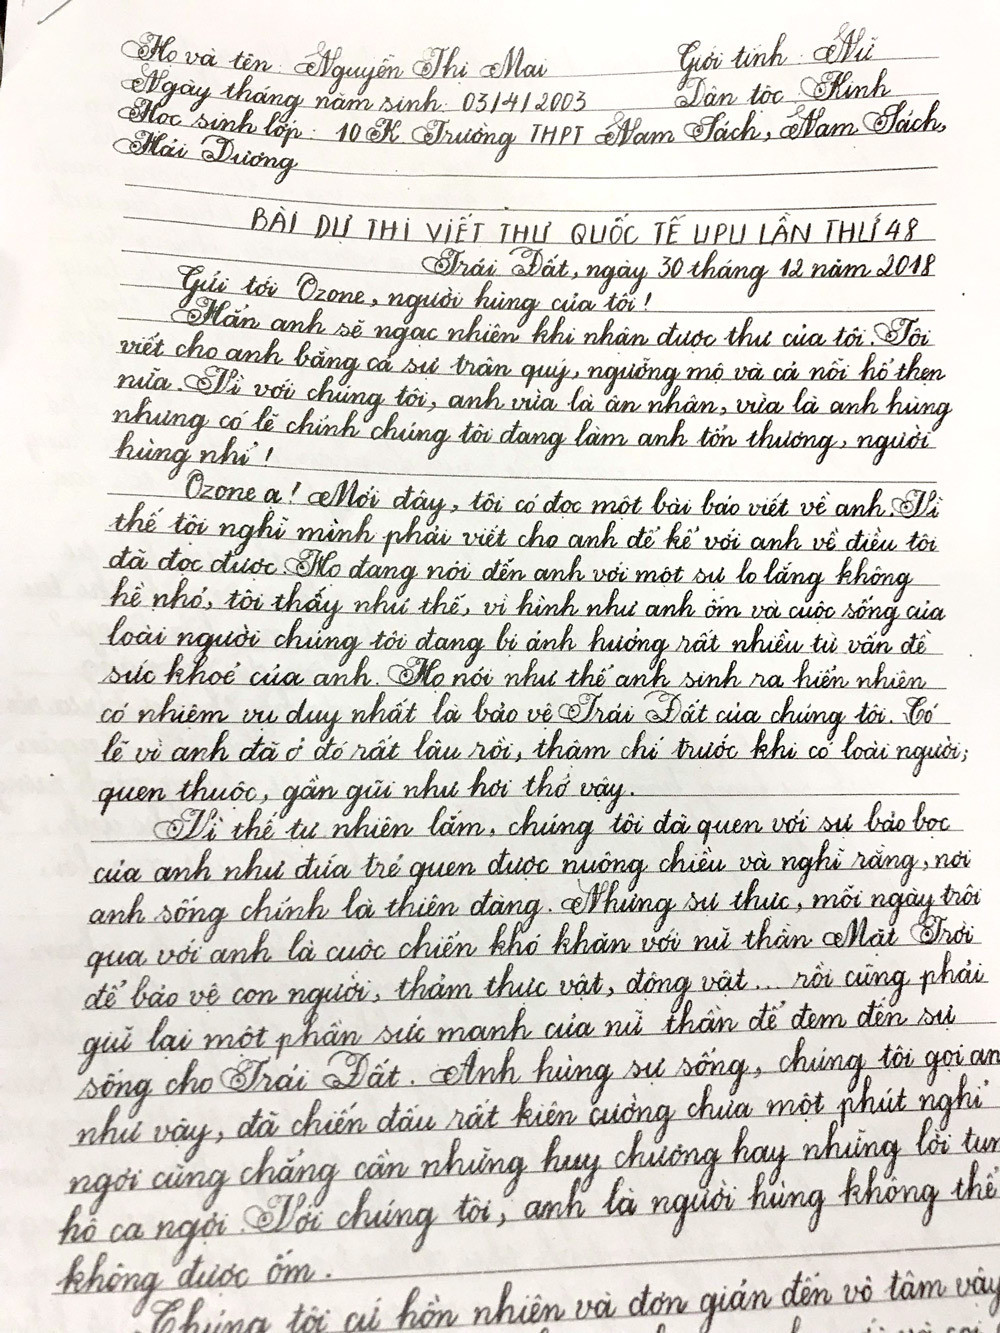 Họ và tên: Nguyễn Thị Mai Giới tính: Nữ
Ngày tháng năm sinh: 03/4/2003 Dân tộc: Kinh
Học sinh lớp: 10K Trường THPT Nam Sách, Nam Sách,
Hải Dương
BÀI DỰ THI VIẾT THƯ QUỐC TẾ UPU LẦN THỨ 48
Trái Đất, ngày 30 tháng 12 năm 2018
Gửi tới Ozone, người hùng của tôi!
Hẳn anh sẽ ngạc nhiên khi nhận được thư của tôi. Tôi
viết cho anh bằng cả sự trân quý, ngưỡng mộ và cả nỗi hổ thẹn
nữa. Vì với chúng tôi, anh vừa là ân nhân, vừa là anh hùng
nhưng có lẽ chính chúng tôi đang làm anh tổn thương, người
hùng nhỉ!
Ozone ạ! Mới đây, tôi có đọc một bài báo viết về anh. Vì
thế tôi nghĩ mình phải viết cho anh để kể với anh về điều tôi
đã đọc được. Họ đang nói đến anh với một sự lo lắng không
hề nhỏ, tôi thấy như thế, vì hình như anh ốm và cuộc sống của
loài người chúng tôi đang bị ảnh hưởng rất nhiều từ vấn đề
sức khoẻ của anh. Họ nói như thể anh sinh ra hiển nhiên
có nhiệm vụ duy nhất là bảo vệ Trái Đất của chúng tôi. Có
lẽ vì anh đã ở đó rất lâu rồi, thậm chí trước khi có loài người;
quen thuộc, gần gũi như hơi thở vậy.
Vì thế tự nhiên lắm, chúng tôi đã quen với sự bảo bọc
của anh như đứa trẻ quen được nuông chiều và nghĩ rằng, nơi
anh sống chính là thiên đàng. Nhưng sự thực, mỗi ngày trôi
qua với anh là cuộc chiến khó khăn với nữ thần Mặt Trời
để bảo vệ con người, thảm thực vật, động vật... rồi cũng phải
giữ lại một phần sức mạnh của nữ thần để đem đến sự
sống cho Trái Đất. Anh hùng sự sống, chúng tôi gọi an
như vậy, đã chiến đấu rất kiên cường chưa một phút nghỉ
ngơi cũng chẳng cần những huy chương hay những lời tun
hô ca ngợi. Với chúng tôi, anh là người hùng không thể
không được ốm.
Chúng tôi cứ hồn nhiên và đơn giản đến vô tâm vậy